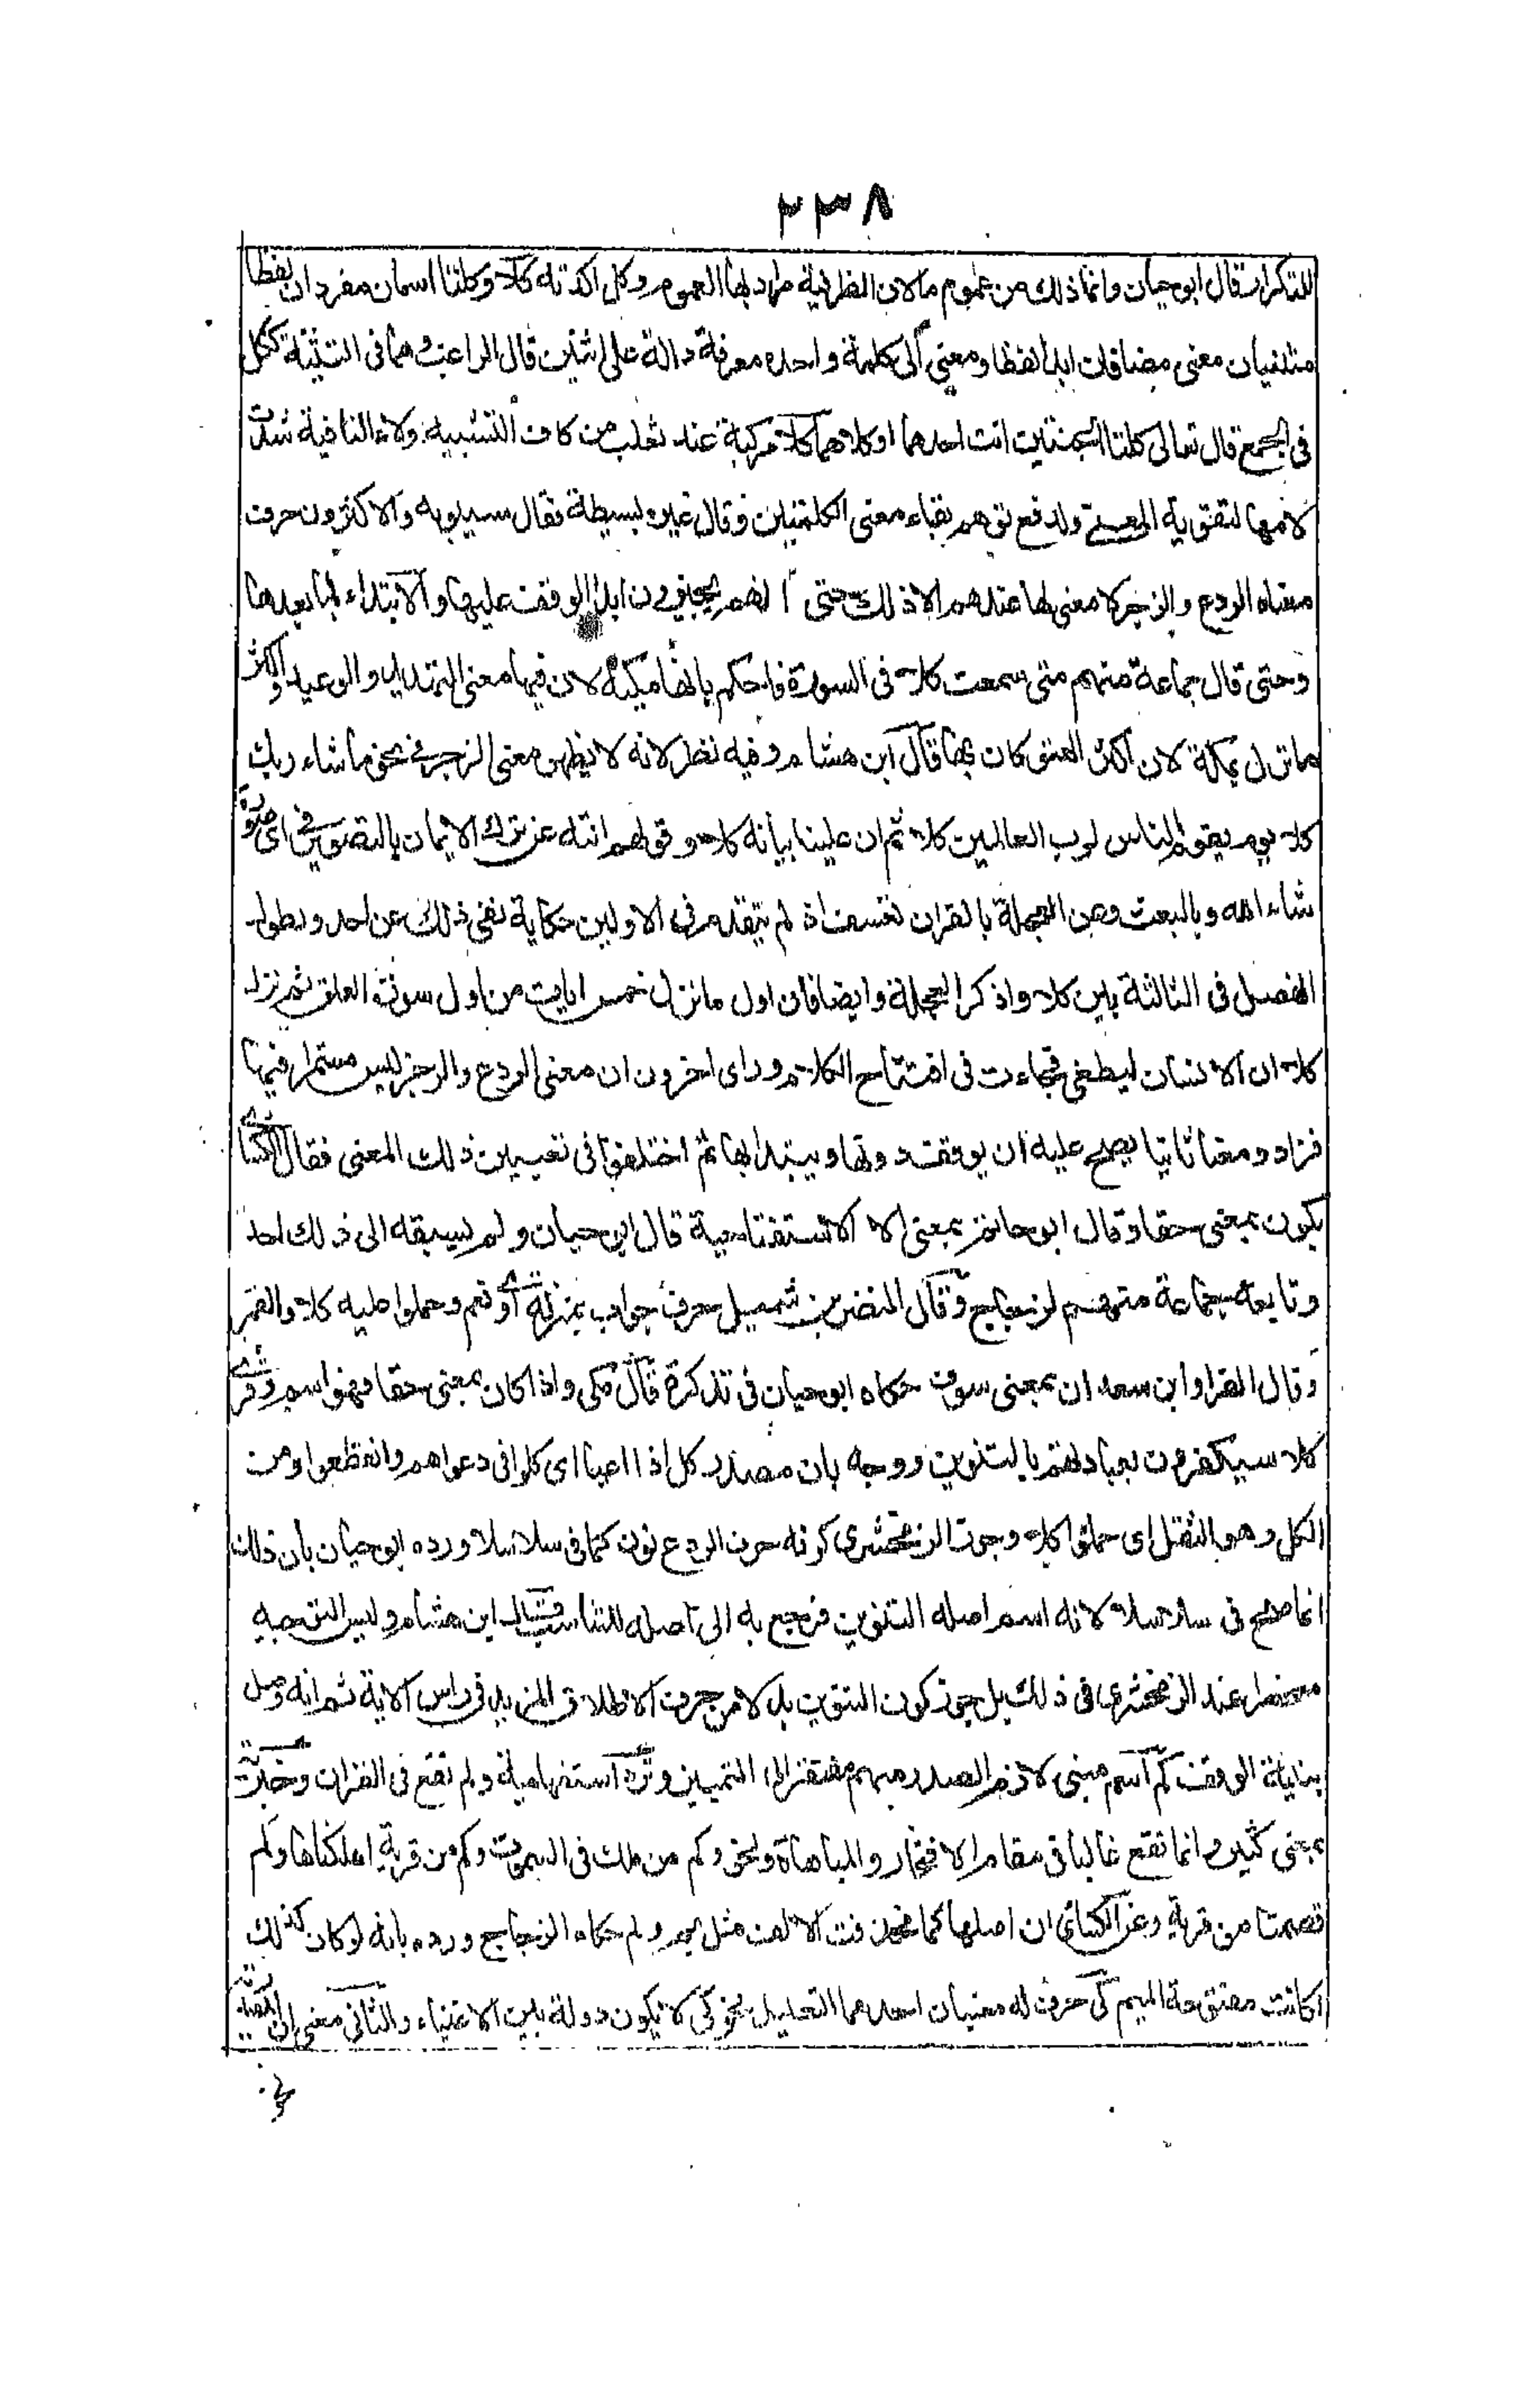 ٢٣٨
للتكرار قال ابو حيان وانما ذلك من عموم ما لان الظرفية مراد بها العموم وكل اكدته كلا وكلتا اسمان مفردان لفظا
مثنيان معنى مضافان ابدا لفظا ومعنى الى كلمة واحدة معرفة دالة على اثنين قال الراغب وهما فى التثنية ككل
فى الجمع قال تعالى كلتا الجنتين اتت احدهما او كلاهما كلا مركبة عند ثعلب من كاف التشبيه ولاء النافية شددت
لامها لتقوية المعنى ولدفع توهم بقاء معنى الكلمتين وقال غيره بسيطة فقال سيبويه والاكثرون حرف
معناه الردع والزجر لا معنى لها عندهم الا ذلك حتى انهم يجيزون ابدا الوقف عليها والابتداء بما بعدها
وحتى قال جماعة منهم متى سمعت كلا فى السورة فاحكم بانها مكية لان فيها معنى التهديد والوعيد واكثر
ما نزل بمكة لان اكثر العتو كان بها قال ابن هشام وفيه نظر لانه لا يظهر معنى الزجر فى نحو ما شاء ربك
كلا يوم يقوم الناس لرب العالمين كلا ثم ان علينا بيانه كلا وقولهم انته عن ترك الايمان بالتصوير فى اى صورة
شاء الله وبالبعث وعن العجلة بالقران تعسف اذ لم يتقدم فى الاولين حكاية نفى ذلك عن احد ولطول
الفصل فى الثالثة بين كلا واذ كر العجلة وايضا فان اول ما نزل خمس ايات من اول سورة العلق ثم نزل
كلا ان الانسان ليطغى فجاءت فى افتتاح الكلام وراى اخرون ان معنى الردع والزجر ليس مستمرا فيها
فزادو معنا ثانيا يصح عليه ان يوقف دونها ويبتدا بها ثم اختلفوا فى تعيين ذلك المعنى فقال الكسائى
يكون بمعنى حقا وقال ابو حاتم بمعنى الا الاستفتاحية قال ابو حيان ولم يسبقه الى ذلك احد
وتابعه جماعة منهم الزجاج وقال النضر بن شميل حرف جواب بمنزلة اى ونعم وحملوا عليه كلا والقمر
وقال الفرا وابن سعدان بمعنى سوف حكاه ابو حيان فى تذكرة قال مكى واذا كان بمعنى حقا فهو اسم وقرئ
كلا سيكفرون بعبادتهم بالتنوين ووجه بان مصدر كل اذا اعيا اى كلوا فى دعواهم وانقطعوا ومن
الكل وهو الثقل اى حملوا كلا وجوز الزمخشرى كونه حرف الردع نون كما فى سلاسلا ورده ابو حيان بان ذلك
انما صح فى سلاسلا لانه اسم اصله التنوين فرجع به الى اصله للتناسب قال ابن هشام وليس التوجيه
منحصرا عند الزمخشرى فى ذلك بل جوز كون التنوين بدلا من حرف الاطلاق المزيد فى راس الاية ثم انه وصل
بنية الوقف كم اسم مبنى لازم الصدر مبهم مفتقر الى التمييز وترد استفهامية ولم تقع فى القران وخبرية
بمعنى كثير وانما تقع غالبا فى مقام الافتخار والمباهاة ونحو وكم من ملك فى السموت وكم من قرية اهلكناها وكم
قصمنا من قرية وعن الكسائى ان اصلها كما فحذفت الالف مثل بم ولم حكاه الزجاج ورده بانه لو كان كذلك
لكانت مفتوحة الميم كى حرف له معنيان احدهما التعليل نحو كى لا يكون دولة بين الاغنياء والثانى معنى ان المصدرية